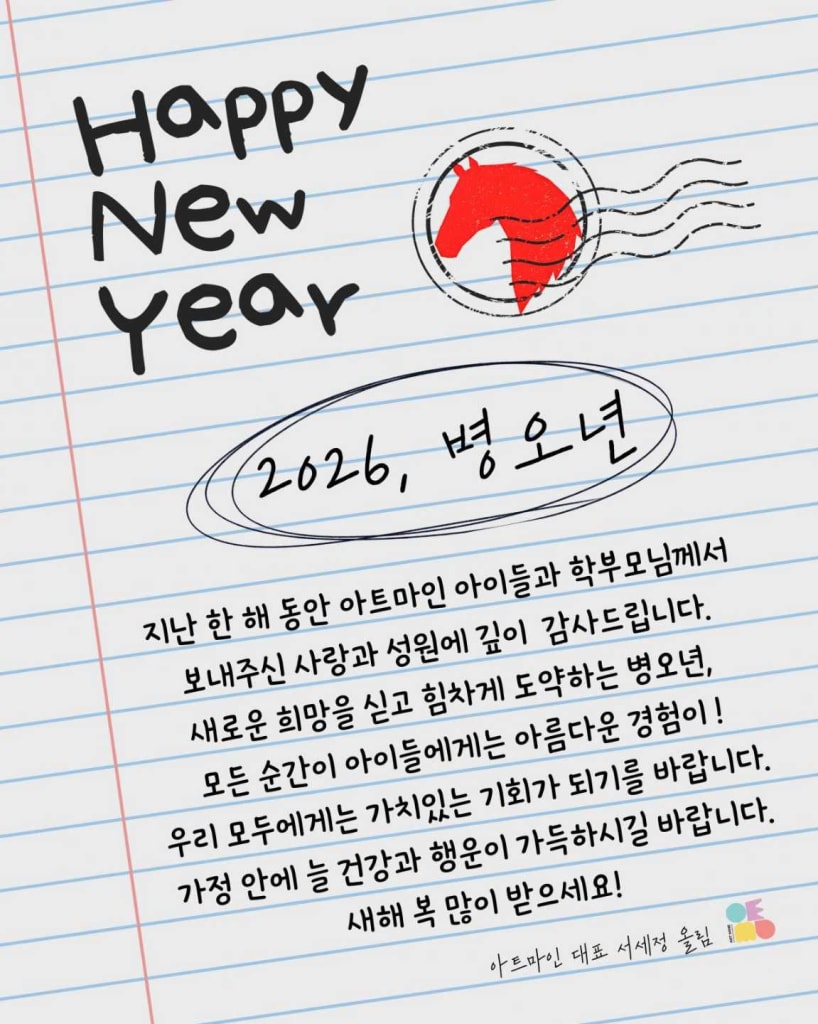 Happy
New
Year
2026, 병오년
지난 한 해 동안 아트마인 아이들과 학부모님께서
보내주신 사랑과 성원에 깊이 감사드립니다.
새로운 희망을 싣고 힘차게 도약하는 병오년,
모든 순간이 아이들에게는 아름다운 경험이!
우리 모두에게는 가치있는 기회가 되기를 바랍니다.
가정 안에 늘 건강과 행운이 가득하시길 바랍니다.
새해 복 많이 받으세요!
아트마인 대표 서세정 올림